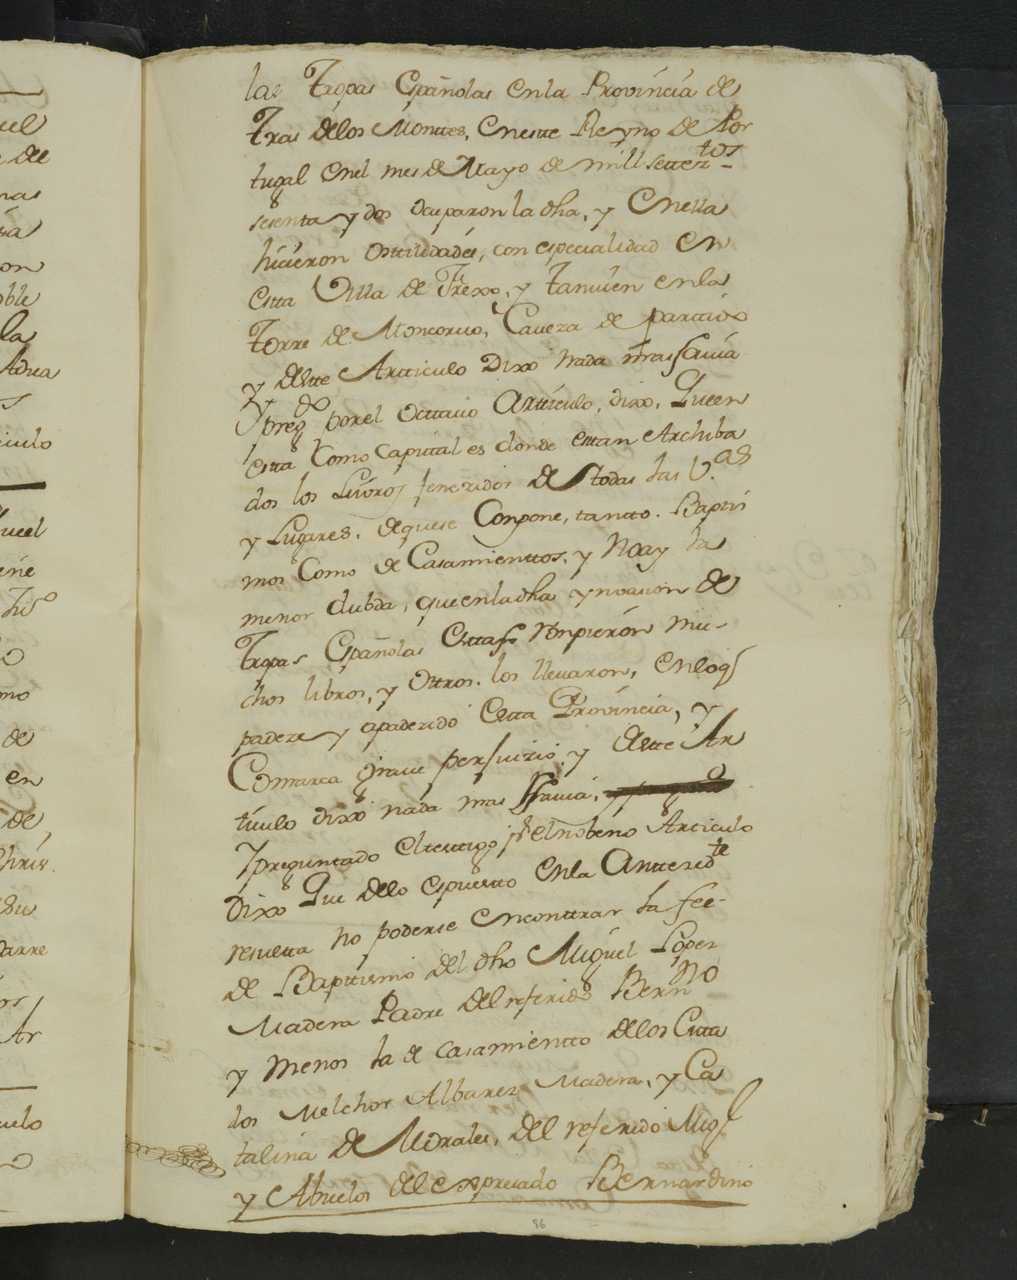 las Tropas Españolas en la Provincia de
Tras de los Monttes, en estte Reyno de Por
tugal en el mes de Mayo de mill settez.tos
sesenta y dos ocuparon la dha, y en ella
hicieron ostilidades, con especialidad en
estta Villa de Frexo, y tanvien en la
Torre de Moncorvo, Caveza de parttido
y de estte Artticulo Dixo nada mas savia
Y preg.do por el Octtavo Artticulo, dixo, Que en
estta Como capital es donde esttan Archiba
dos los Livros fenezidos de todas las V.as
y Lugares, de que se Conpone, tantto Bapti
mos Como de Casamienttos, y no ay la
menor dubda, que en la dha ynvasion de
Tropas Españolas Estas ronpieron mu-
chos libros, y ottros los llevaron, en lo q
padeze y a padezido Estta Provincia, y
Comarca grave perjuizio, y de estte Ar
ticulo dixo nada mas savia,
Y preguntado el testigo p.r el nobeno Articulo
Dixo Que de lo espuestto en la Antterid.te
resultta no poderse enconttrar la fee-
de Baptismo del dho Miguel Lopez
Madera Padre del referido Bern.no
y menos la de casamientto de los Citta
dos Melchor Albarez Madera, y Ca
talina de Morales, del referido Mig.l
y Abuelos del expresado Bernardino
86